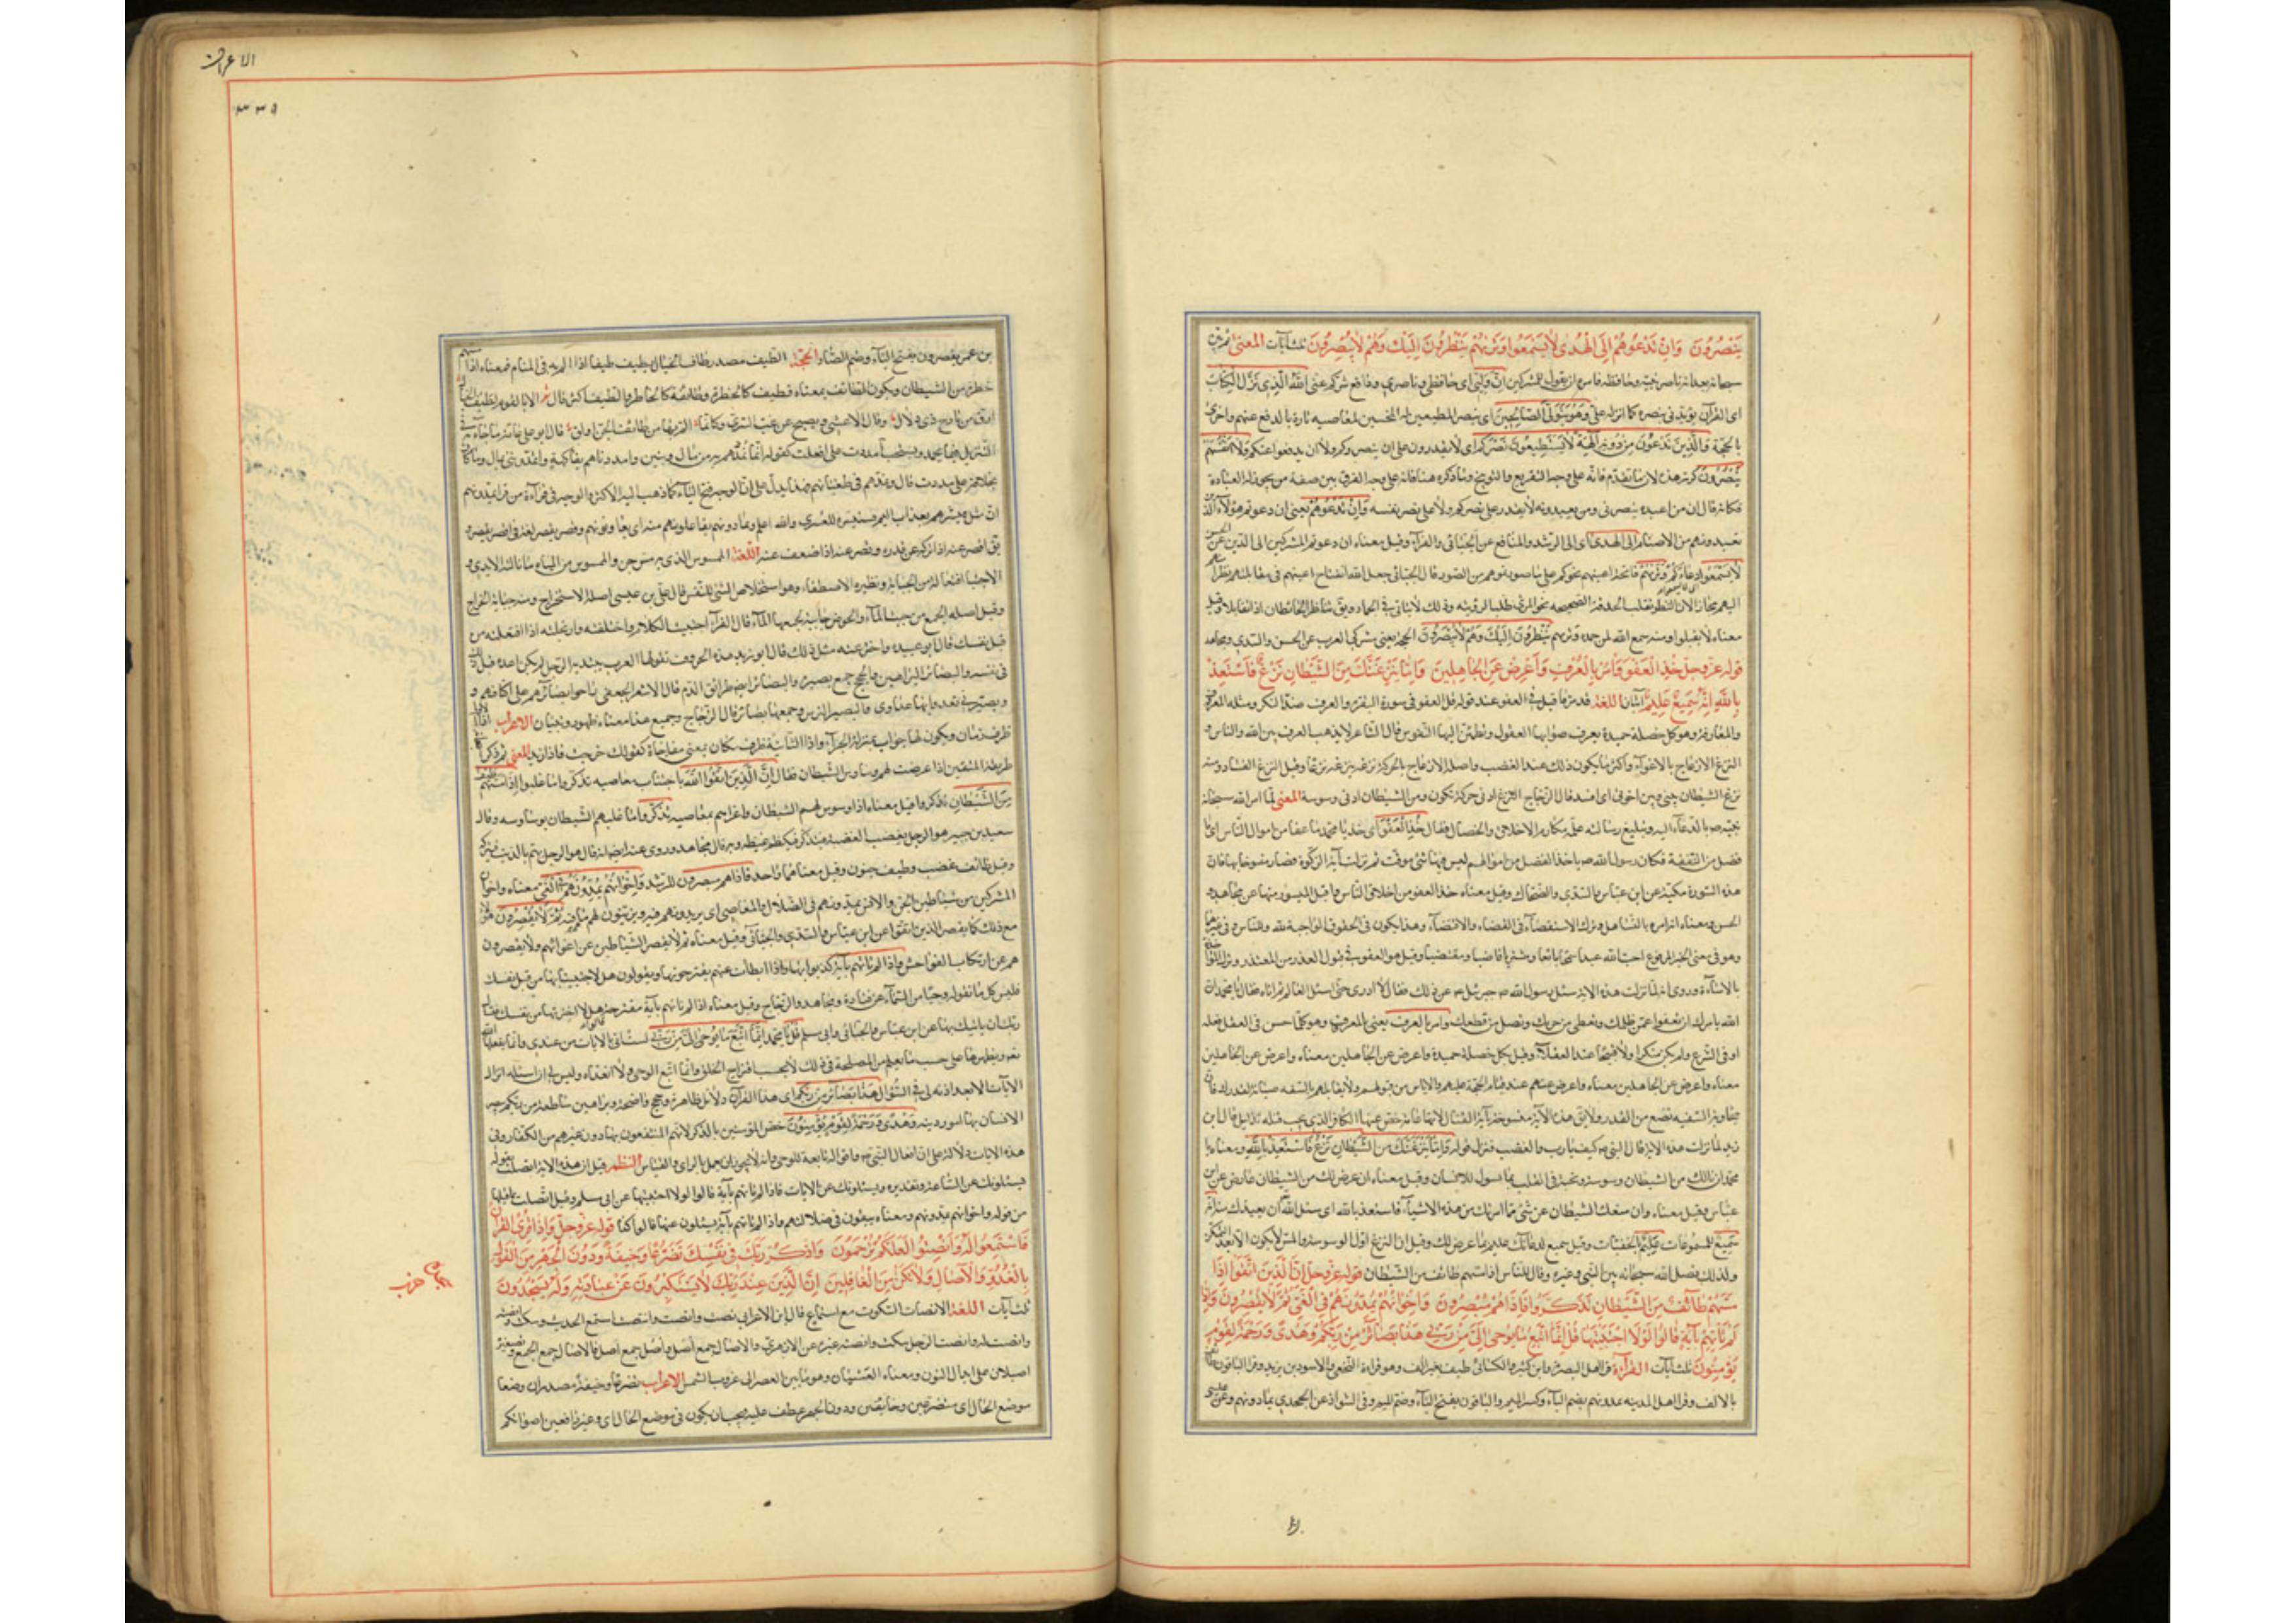 ينصرون وان تدعوهم الى الهدى لا يسمعوا وتريهم ينظرون اليك وهم لا يبصرون ثلث آيات المعنى ثم بين
سبحانه ناصر نبيه وحافظه فامره ان يقول للمشركين ان وليى اى حافظى وناصرى ودافع شركم عنى الله الذى نزل الكتاب
اى القرآن يؤيدنى بنصره كما انزله على وهو يتولى الصالحين اى ينصر المطيعين له المجتنبين لمعاصيه تارة بالدفع عنهم واخرى
بالحجة والذين تدعون من دونه آلهة لا يستطيعون نصركم اى لا يقدرون على ان ينصروكم ولا ان يدفعوا عنكم ولا انفسهم
ينصرون كرر هذا لان ما تقدم فانه على وجه التقريع والتوبيخ وما ذكره هنا فانه على وجه الفرق بين صفة من يجوز له العبادة
فكانه قال ان من اعبده ينصرنى ومن تعبدونه لا يقدر على نصركم ولا على نصر نفسه وان تدعوهم يعنى ان دعوتم هؤلاء الذين
تعبدونهم من الاصنام الى الهدى اى الى الرشد والمنافع عن الجبائى والفراء وقيل معناه ان دعوتم المشركين الى الدين عن الحسن
لا يسمعوا دعاءكم وتريهم فاتحة اعينهم نحوكم على ما صورتموهم من الصور قال الجبائى جعل الله انفتاح اعينهم فى مقابلتهم نظرا
اليهم مجازا لان النظر تقليب الحدقة الصحيحة نحو المرئى طلبا لرؤيته وذلك لا يتاتى فى الجماد ويق تناظر الحائطان اذا تقابلا وقيل
معناه لا يقبلوا ومنه سمع الله لمن حمده وتريهم ينظرون اليك وهم لا يبصرون الحجة يعنى مشركى العرب عن الحسن والسدى ومجاهد
قوله عز وجل خذ العفو وامر بالعرف واعرض عن الجاهلين واما ينزغنك من الشيطان نزغ فاستعذ
بالله انه سميع عليم آيتان اللغة قد مر ما قيل فى العفو عند قوله قل العفو فى سورة البقرة والعرف ضد النكر ومثله المعروف
والعارفة وهو كل خصلة حميدة يعرف صوابها العقول وتطمئن اليها النفوس قال الشاعر لا يذهب العرف بين الله والناس و
النزغ الازعاج بالاغواء واكثر ما يكون ذلك عند الغضب واصله الازعاج بالحركة نزغه ينزغه نزغا وقيل النزغ الفساد ومنه
نزغ الشيطان بينى وبين اخوتى اى افسد قال الزجاج النزغ ادنى حركة تكون ومن الشيطان ادنى وسوسة المعنى لما امر الله سبحانه
نبيه ص بالدعاء اليه وتبليغ رسالته علمه مكارم الاخلاق والخصال فقال خذ العفو اى خذ يا محمد ما عفا من اموال الناس اى ما
فضل من النفقة فكان رسول الله ص ياخذ الفضل من اموالهم ليس فيها شئ موقت ثم نزلت آية الزكوة فصار منسوخا بها فان
هذه السورة مكية عن ابن عباس والسدى والضحاك وقيل معناه خذ العفو من اخلاق الناس واقبل الميسور منها عن مجاهد و
الحسن ومعناه انه امره بالتساهل وترك الاستقصاء فى القضاء والاقتضاء وهذا يكون فى الحقوق الواجبة لله وللناس وفى غيرها
وهو فى معنى الخبر المرفوع احب الله عبدا سمحا بائعا ومشتريا قاضيا ومقتضيا وقيل هو العفو فى قبول العذر من المعتذر وترك المؤاخذة
بالاساءة وروى انه لما نزلت هذه الاية سئل رسول الله ص جبرئيل عن ذلك فقال لا ادرى حتى اسئل العالم ثم اتاه فقال يا محمد ان
الله يامرك ان تعفوا عمن ظلمك وتعطى من حرمك وتصل من قطعك وامر بالعرف يعنى بالمعروف وهو كلما حسن فى العقل فعله
او فى الشرع ولم يكن منكرا ولا قبيحا عند العقلاء وقيل بكل خصلة حميدة واعرض عن الجاهلين معناه واعرض عن الجاهلين
معناه واعرض عنهم عند قيام الحجة عليهم والاياس من قبولهم ولا تقابلهم بالسفه صيانة لقدرك فان
مجاوبة السفيه تضع من القدر ولا يق هذه الآية منسوخة بآية القتال لانها عامة خص عنها الكافر الذى يجب قتله بدليل قال ابن
زيد لما نزلت هذه الاية قال النبى ص كيف يا رب والغضب فنزل قوله واما ينزغنك من الشيطان نزغ فاستعذ بالله ومعناه يا
محمد ان نالك من الشيطان وسوسة ونخسة فى القلب بما يسول للانسان وقيل معناه ان عرض لك من الشيطان عارض عن ابن
عباس وقيل معناه وان منعك الشيطان عن شئ مما امرتك من هذه الاشياء فاستعذ بالله اى سئل الله ان يعيذك منه انه
سميع للمسموعات عليم بالخفيات وقيل سميع لدعائك عليم بما عرض لك وقيل ان النزغ اول الوسوسة والمس لا يكون الا بعد التمكن
ولذلك فصل الله سبحانه بين النبى وغيره وقال للناس اذا مسهم طائف من الشيطان قوله عز وجل ان الذين اتقوا اذا
مسهم طائف من الشيطان تذكروا فاذا هم مبصرون واخوانهم يمدونهم فى الغى ثم لا يقصرون واذا
لم تاتهم بآية قالوا لولا اجتبيتها قل انما اتبع ما يوحى الى من ربى هذا بصائر من ربكم وهدى ورحمة لقوم
يؤمنون ثلث آيات القرآءة قرا اهل البصرة وابن كثير والكسائى طيف بغير الف وهو قراءة النخعى والاسود بن يزيد وقرا الباقون طائف
بالالف وقرا اهل المدينه يمدونهم بضم الياء وكسر الميم والباقون بفتح الياء وضم الميم وفى الشواذ عن الجحدرى يمادونهم وعن عيسى
الاعراف
٣٣٥
بن عمر يقصرون بفتح الياء وضم الصاد الحجة الطيف مصدر طاف الخيال يطيف طيفا اذا الم به فى المنام فمعناه اذا مسهم
خطرة من الشيطان ويكون الطائف بمعناه فطيف كالخطرة وطائف كالخاطر والطيف اكثر قال الا يا لقوم لطيف الخيال
ارق من نازح ذى دلال وقال الاعشى وتصبح عن غب السرى وكانما الم بها من طائف الجن اولق قال ابو على عامة ما جاء فى
التنزيل فيما يحمد ويستحب امددت على افعلت كقوله انما نمدهم به من مال وبنين وامددناهم بفاكهة واتمدونن بمال وما كان
بخلافه على مددت قال ويمدهم فى طغيانهم فهذا يدل على ان الوجه فتح الياء كما ذهب اليه الاكثر والوجه فى قرآءة من قرا يمدونهم
انه مثل فبشرهم بعذاب اليم فسنيسره للعسرى والله اعلم
يق اقصر عنه اذا نزع عن قدرة وقصر عنه اذا ضعف عنه اللغة الممسوس الذى به مس جن والممسوس من المياه ما نالته الايدى و
الاجتباء افتعال من الجباية ونظيره الاصطفاء وهو استخلاص الشئ للنفس قال على بن عيسى اصله الاستخراج ومنه جباية الخراج
وقيل اصله الجمع من جبيت الماء والحوض جابية لجمعها الماء قال الفراء اجتبيت الكلام واختلقته وارتجلته اذا افتعلته من
قبل نفسك قال ابو عبيدة واخترعته مثل ذلك قال ابو زيد هذه الحروف تقولها العرب
فى نفسه والبصائر البراهين والحجج جمع بصيرة والبصائر ايضا طرائق الدم قال الاشعر الجعفى راحوا بصائرهم على اكتافهم و
وبصيرتى يعدو بها عتد وأى والبصيرة الترس وجمعها بصائر قال الزجاج وجميع هذا معناه ظهور الشئ وبيانه الاعراب اذا الاولى
ظرف زمان ويكون لها جواب بمنزلة الجزاء واذا الثانية ظرف مكان بمعنى مفاجاة كقولك خرجت فاذا زيد المعنى ثم ذكر
طريقة المتقين اذا عرضت لهم وساوس الشيطان فقال ان الذين اتقوا الله باجتناب معاصيه اذا مسهم طائف
من الشيطان تذكروا قيل معناه اذا وسوس لهم الشيطان واغراهم بمعاصيه تذكروا ما عليهم وقال
سعيد بن جبير هو الرجل يغضب الغضبة فيتذكر فيكظم غيظه وبه قال مجاهد وروى عنه ايضا انه قال هو الرجل يهم بالذنب فيتركه
وقيل طائف غضب وطيف جنون وقيل معناهما واحد فاذا هم مبصرون للرشد واخوانهم يمدونهم فى الغى معناه واخوان
المشركين من شياطين الجن والانس يمدونهم فى الضلال والمعاصى اى يزيدونهم فيه ويزينون لهم ما هم فيه ثم لا يقصرون
مع ذلك كما يقصر الذين اتقوا عن ابن عباس والسدى والجبائى وقيل معناه ثم لا يقصر الشياطين عن اغوائهم ولا يقصرون
هم عن ارتكاب الفواحش واذا لم تاتهم بآية كذبوا بها واذا ابطات عنهم يقترحونها ويقولون هل لا جئتنا بها من قبل نفسك
فليس كل ما تقوله وحيا من السماء عن قتادة ومجاهد والزجاج وقيل معناه اذا لم تاتهم بآية مقترحة هلا اخترتها من نفسك فتسال
ربك ان ياتيك بها عن ابن عباس والجبائى وابى مسلم قل يا محمد انما اتبع ما يوحى الى من ربى لست آتى بالآيات من عندى وانما يفعلها الله
تعه ويظهرها على حسب ما يعلم من المصلحة فى ذلك لا بحسب اقتراح الخلق وانما اتبع الوحى ولا اتعداه وليس لى ان اسئله انزال
الآيات الا بعد اذنه لى فى السؤال هذا بصائر من ربكم اى هذا القرآن دلائل ظاهرة وحجج واضحة وبراهين ساطعة من ربكم يبصر
الانسان بها امور دينه وهدى ورحمة لقوم يؤمنون خص المؤمنين بالذكر لانهم المنتفعون بها دون غيرهم من الكفار وفى
هذه الايات دلالة على ان افعال النبى ص واقواله تابعة للوحى وانه لا يجوز ان يعمل بالراى والقياس النظم قيل ان هذه الاية اتصلت بقوله
يسئلونك عن الساعة وتقديره ويسئلونك عن الايات فاذا لم تاتهم بآية قالوا لولا اجتبيتها عن ابى مسلم وقيل اتصلت بما قبلها
من قوله واخوانهم يمدونهم ومعناه يبقون فى ضلالتهم واذا لم تاتهم بآية يسئلون عنها قالوا كذا قوله عز وجل واذا قرئ القرآن
فاستمعوا له وانصتوا لعلكم ترحمون واذكر ربك فى نفسك تضرعا وخيفة ودون الجهر من القول
بالغدو والآصال ولا تكن من الغافلين ان الذين عند ربك لا يستكبرون عن عبادته وله يسجدون
ثلث آيات اللغة الانصات السكوت مع استماع قال ابن الاعرابى نصت وانصت وانتصت استمع الحديث وسكت وانصته
وانصت له وانصت الرجل سكت وانصته غيره عن الازهرى والاصال جمع اصل واصل جمع اصيل فالاصال جمع الجمع وتصغيره
اصيلان على ابدال النون ومعناه العشيات وهو ما بين العصر الى غروب الشمس الاعراب تضرعا وخيفة مصدران وضعا
موضع الحال اى متضرعين وخائفين ودون الجهر عطف عليه فيجب ان يكون فى موضع الحال اى وغير رافعين اصواتكم
حزب